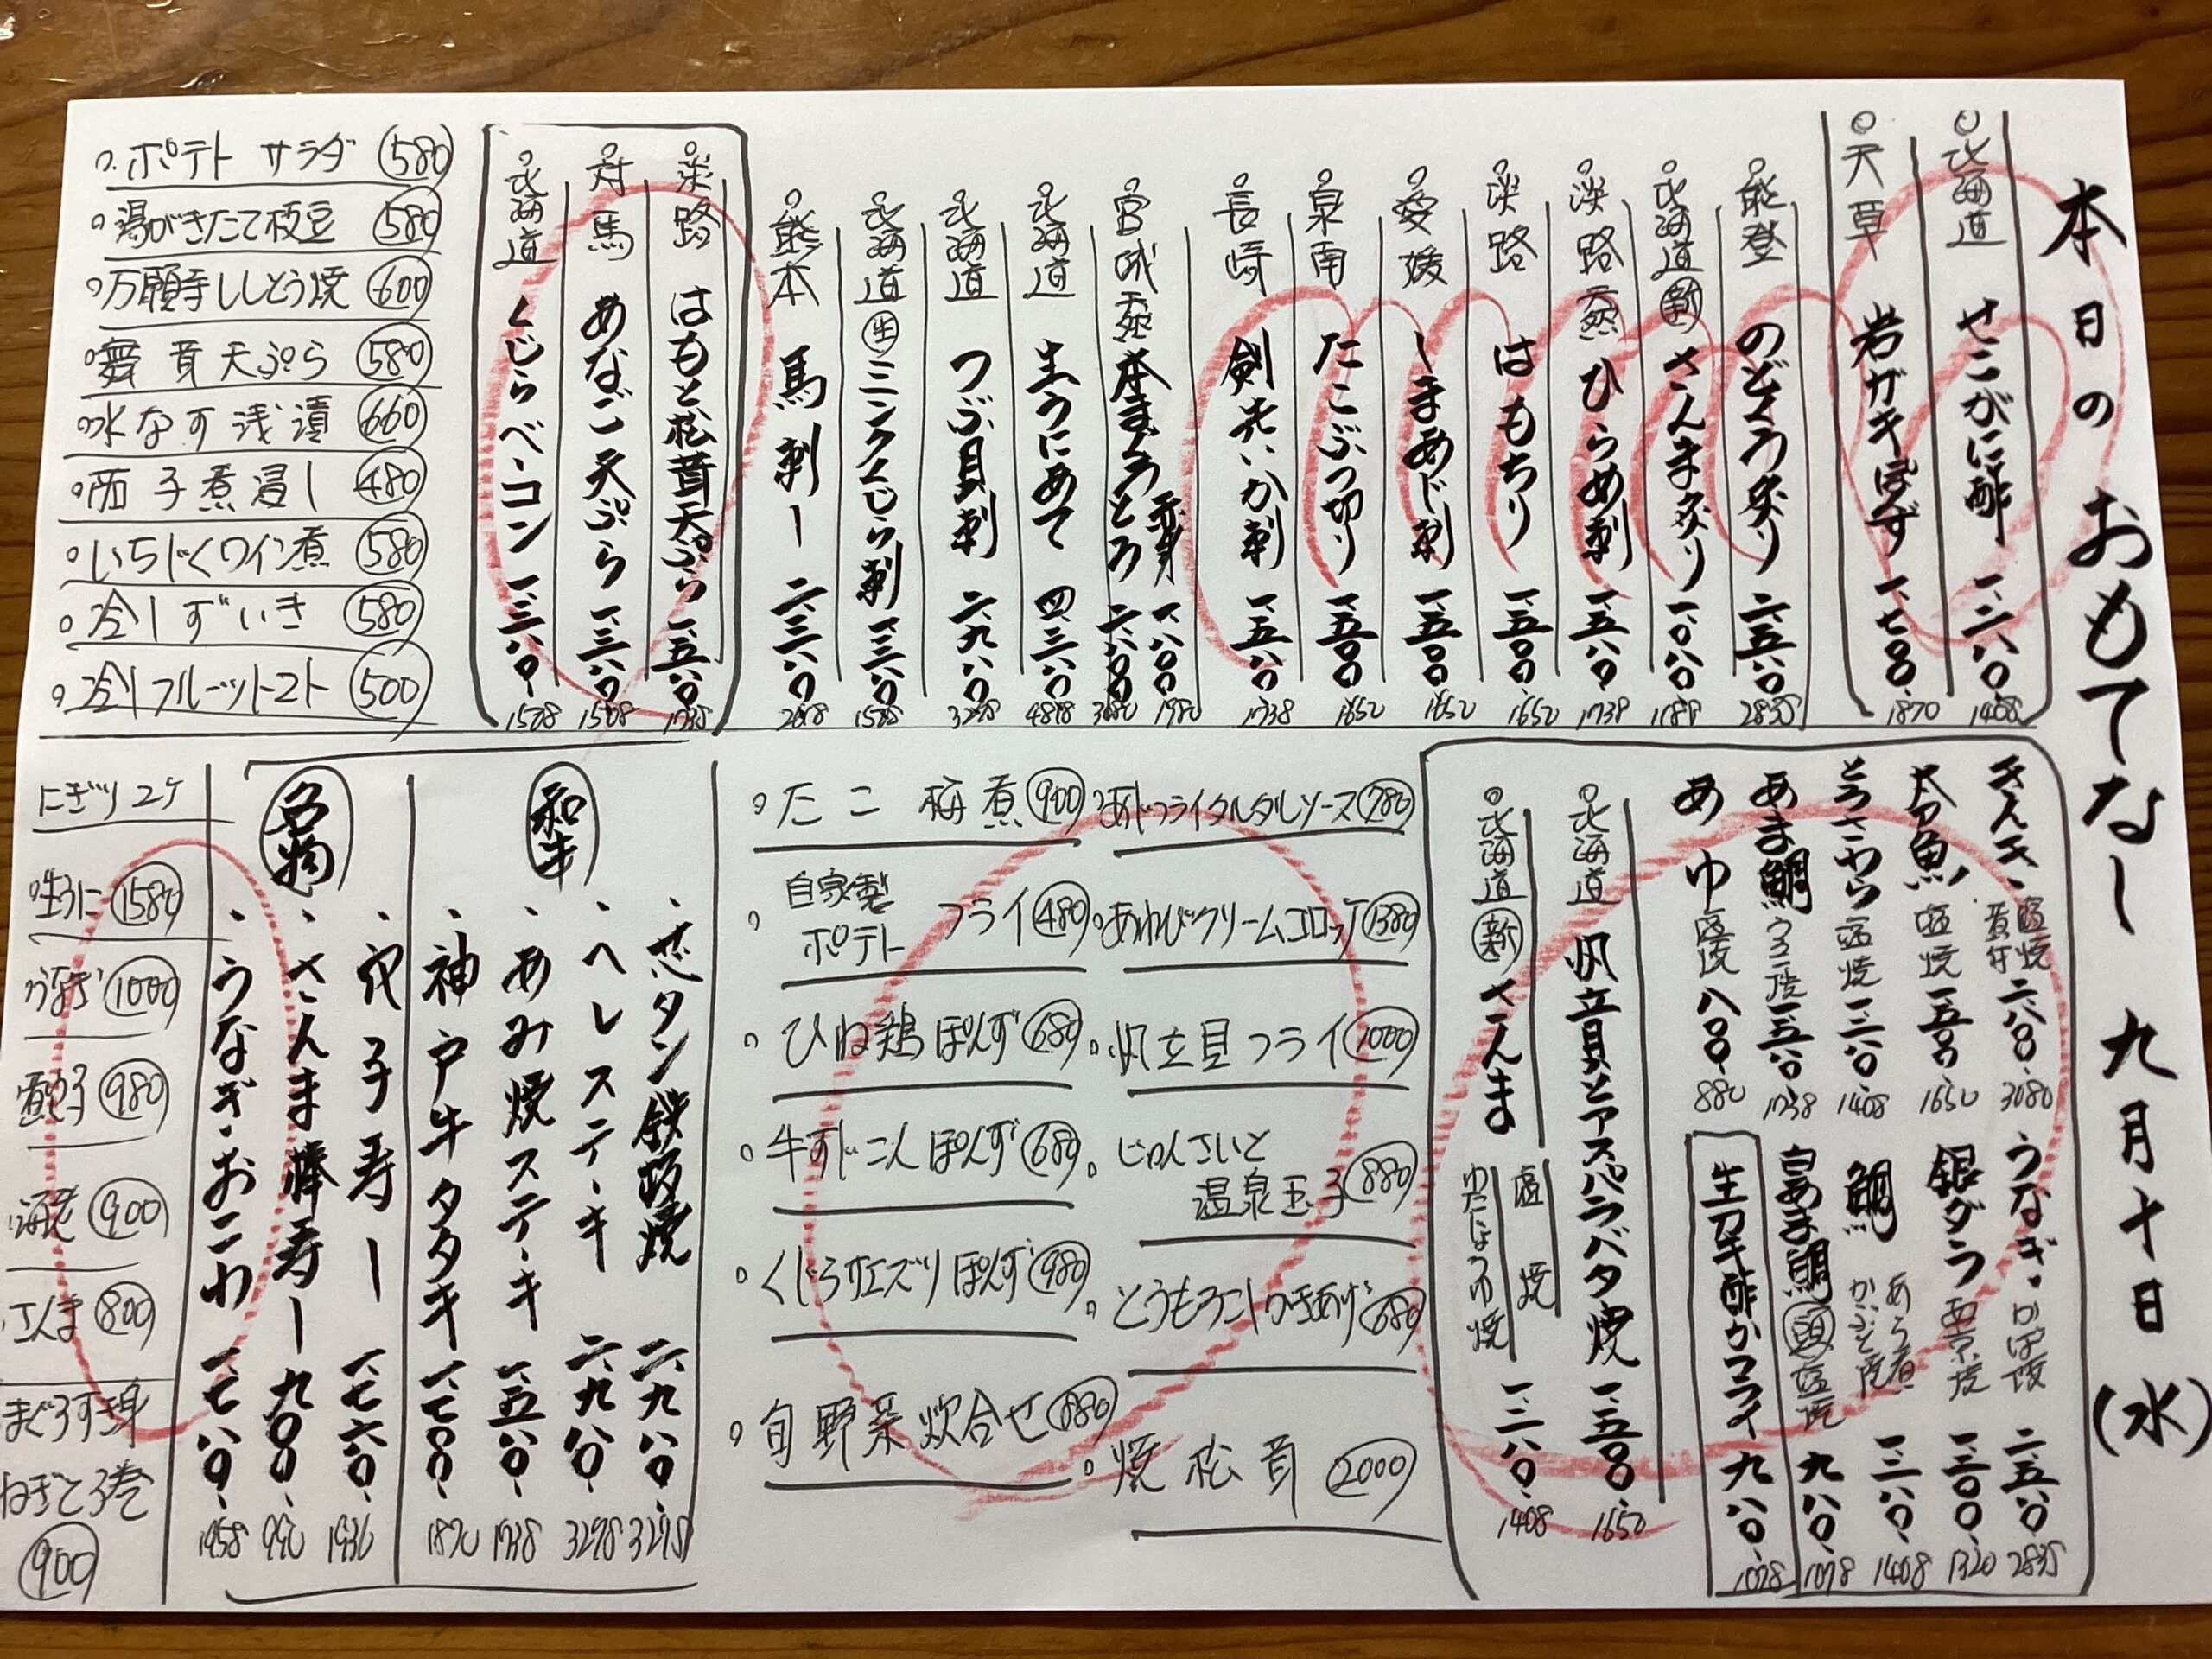 本日の おもてなし 九月十日(水)
北海道 せこがに酢 一、二八〇 1408
天草 岩ガキぽんず 一、七〇〇 1870
能登 のどぐろ炙り 二、五八〇 2838
北海道 新 さんま炙り 一、〇八〇 1188
淡路 天然 ひらめ刺 一、五八〇 1738
淡路 はもちり 一、五〇〇 1650
愛媛 しまあじ刺 一、五〇〇 1650
泉南 たこぶつ切り 一、五〇〇 1650
長崎 剣先いか刺 一、五八〇 1738
宮城 天然 本まぐろ 赤身 一、八〇〇 1980
とろ 二、八〇〇 3080
北海道 生うにあて 四、三八〇 4818
北海道 つぶ貝刺 二、九八〇 3278
北海道 生 ミンククじら刺 一、三八〇 1518
熊本 馬刺し 二、三八〇 2618
淡路 はもと松茸天ぷら 一、五八〇 1738
対馬 あなご天ぷら 一、三八〇 1518
北海道 くじらベーコン 一、三八〇 1518
ポテトサラダ 580
湯がきたて枝豆 580
万願寺ししとう焼 600
舞茸天ぷら 580
水なす浅漬 660
茄子煮浸し 480
いちじくワイン煮 580
冷しずいき 580
冷しフルーツトマト 500
きんき 塩焼 煮付 二、八〇〇 3080
太刀魚 塩焼 一、五〇〇 1650
とろさわら 塩焼 一、二八〇 1408
あま鯛 うろこ焼 一、五八〇 1738
あゆ 塩焼 八〇〇 880
うなぎ かば焼 二、五八〇 2838
銀ダラ 西京焼 一、二〇〇 1320
鯛 あら煮 かぶと焼 一、二八〇 1408
白あま鯛 頭 塩焼 九八〇 1078
生カキ酢かフライ 九八〇 1078
北海道 帆立貝とアスパラバタ焼 一、五〇〇 1650
北海道 新 さんま 塩焼 ゆたじょうゆ焼 一、二八〇 1408
たこ梅煮 900
自家製ポテトフライ 480
ひね鶏ぽんず 680
牛すじこんぽんず 680
くじらサエズリぽんず 980
旬野菜炊合せ 880
あじフライタルタルソース 780
あわびクリームコロッケ 1380
帆立貝フライ 1000
じゅんさいと
温泉玉子 880
とうもろこしかきあげ 680
焼松茸 2000
和牛
芯タン鉄板焼 二、九八〇 3278
ヘレステーキ 二、九八〇 3278
あみ焼ステーキ 一、五八〇 1738
神戸牛タタキ 一、七〇〇 1870
名物
穴子寿し 一、七六〇 1936
さんま棒寿し 九〇〇 990
うなぎ・おこわ 一、七八〇 1958
にぎり2ケ
生うに 1580
うなぎ 1000
煮穴子 980
海老 900
さんま 800
まぐろすき身
ねぎとろ巻
900